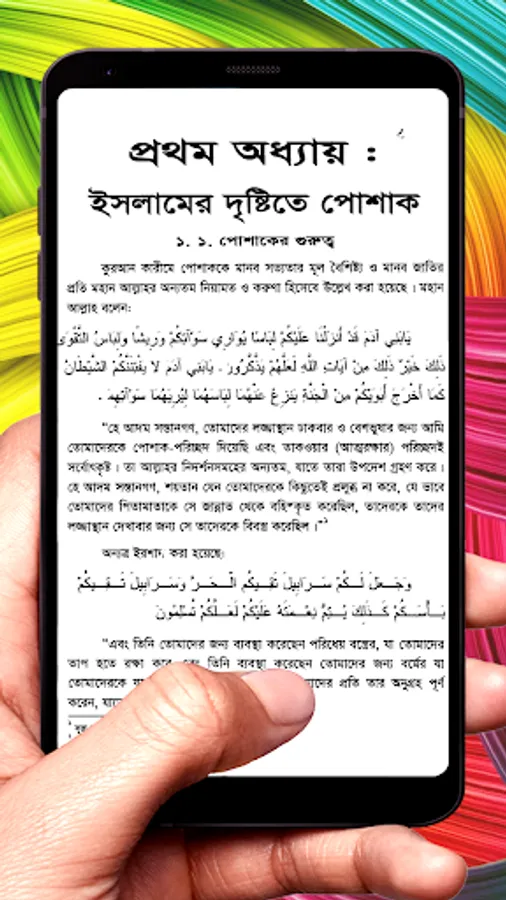 প্রথম অধ্যায় :
ইসলামের দৃষ্টিতে পোশাক
১. ১. পোশাকের গুরুত্ব
কুরআন কারীমে পোশাককে মানব সভ্যতার মূল বৈশিষ্ট্য ও মানব জাতির
প্রতি মহান আল্লাহর অন্যতম নিয়ামত ও করুণা হিসেবে উল্লেখ করা হয়েছে । মহান
আল্লাহ বলেন:
يَابَنِي آدَمَ قَدْ أَنزَلْنَا عَلَيْكُمْ لِبَاسًا يُوَارِي سَوْآتِكُمْ وَرِيشًا وَلِبَاسُ التَّقْوَى
ذَلِكَ خَيْرٌ ذَلِكَ مِنْ آيَاتِ اللَّهِ لَعَلَّهُمْ يَذَّكَّرُونَ . يَابَنِي آدَمَ لا يَفْتِنَنَّكُمْ الشَّيْطَانُ
كَمَا أَخْرَجَ أَبَوَيْكُمْ مِنَ الْجَنَّةِ يَنزِعُ عَنْهُمَا لِبَاسَهُمَا لِيُرِيَهُمَا سَوْآتِهِمَا .
“হে আদম সন্তানগণ, তোমাদের লজ্জাস্থান ঢাকবার ও বেশভূষার জন্য আমি
তোমাদেরকে পোশাক-পরিচ্ছদ দিয়েছি এবং তাকওয়ার (আত্মরক্ষার) পরিচ্ছদই
সর্বোৎকৃষ্ট । তা আল্লাহর নিদর্শনসমূহের অন্যতম, যাতে তারা উপদেশ গ্রহণ করে ।
হে আদম সন্তানগণ, শয়তান যেন তোমাদেরকে কিছুতেই প্রলুব্ধ না করে, যে ভাবে
তোমাদের পিতামাতাকে সে জান্নাত থেকে বহিষ্কৃত করেছিল, তাদেরকে তাদের
লজ্জাস্থান দেখাবার জন্য সে তাদেরকে বিবস্ত্র করেছিল ।”১
অন্যত্র ইরশাদ করা হয়েছে:
وَجَعَلَ لَكُمْ سَرَابِيلَ تَقِيكُمِ الْحَرَّ وَسَرَابِيلَ تَقِيكُمْ
بَأْسَكُمْ كَذَلِكَ يُتِمُّ نِعْمَتَهُ عَلَيْكُمْ لَعَلَّكُمْ تُسْلِمُونَ
“এবং তিনি তোমাদের জন্য ব্যবস্থা করেছেন পরিধেয় বস্ত্রের, যা তোমাদের
তাপ হতে রক্ষা করে এবং তিনি ব্যবস্থা করেছেন তোমাদের জন্য বর্মের যা
তোমাদেরকে প্রতি তার অনুগ্রহ পূর্ণ
করেন,